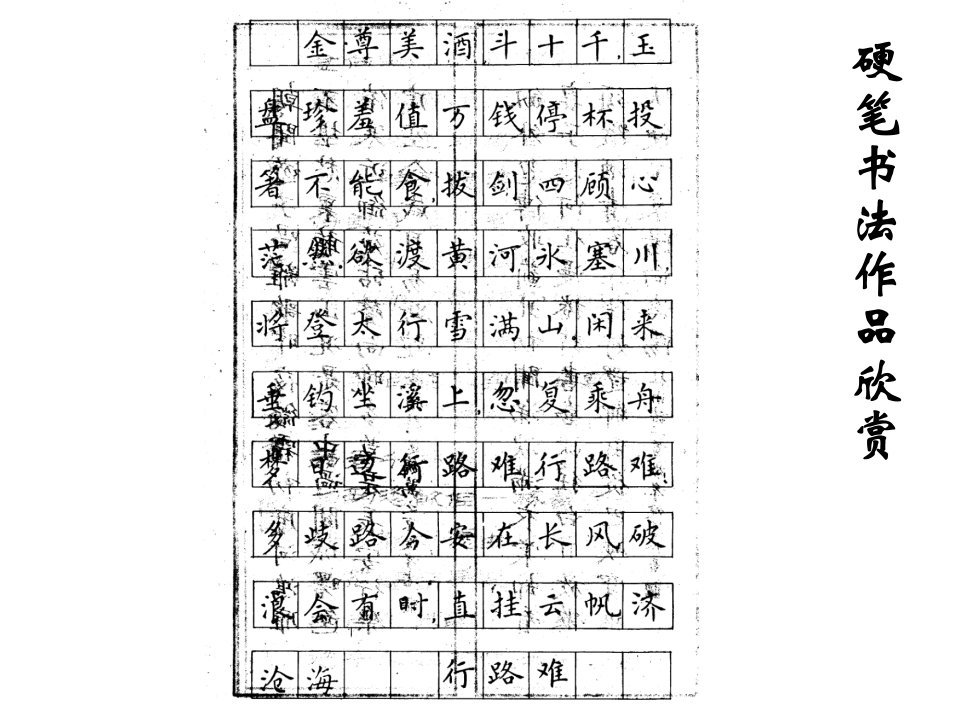 金尊美酒斗十千玉
盘珍羞值万钱停杯投
箸不能食拔剑四顾心
茫然欲渡黄河冰塞川
将登太行雪满山闲来
垂钓坐溪上忽复乘舟
梦日边行路难行路难
多歧路今安在长风破
浪会有时直挂云帆济
沧海 行路难
硬笔书法作品欣赏